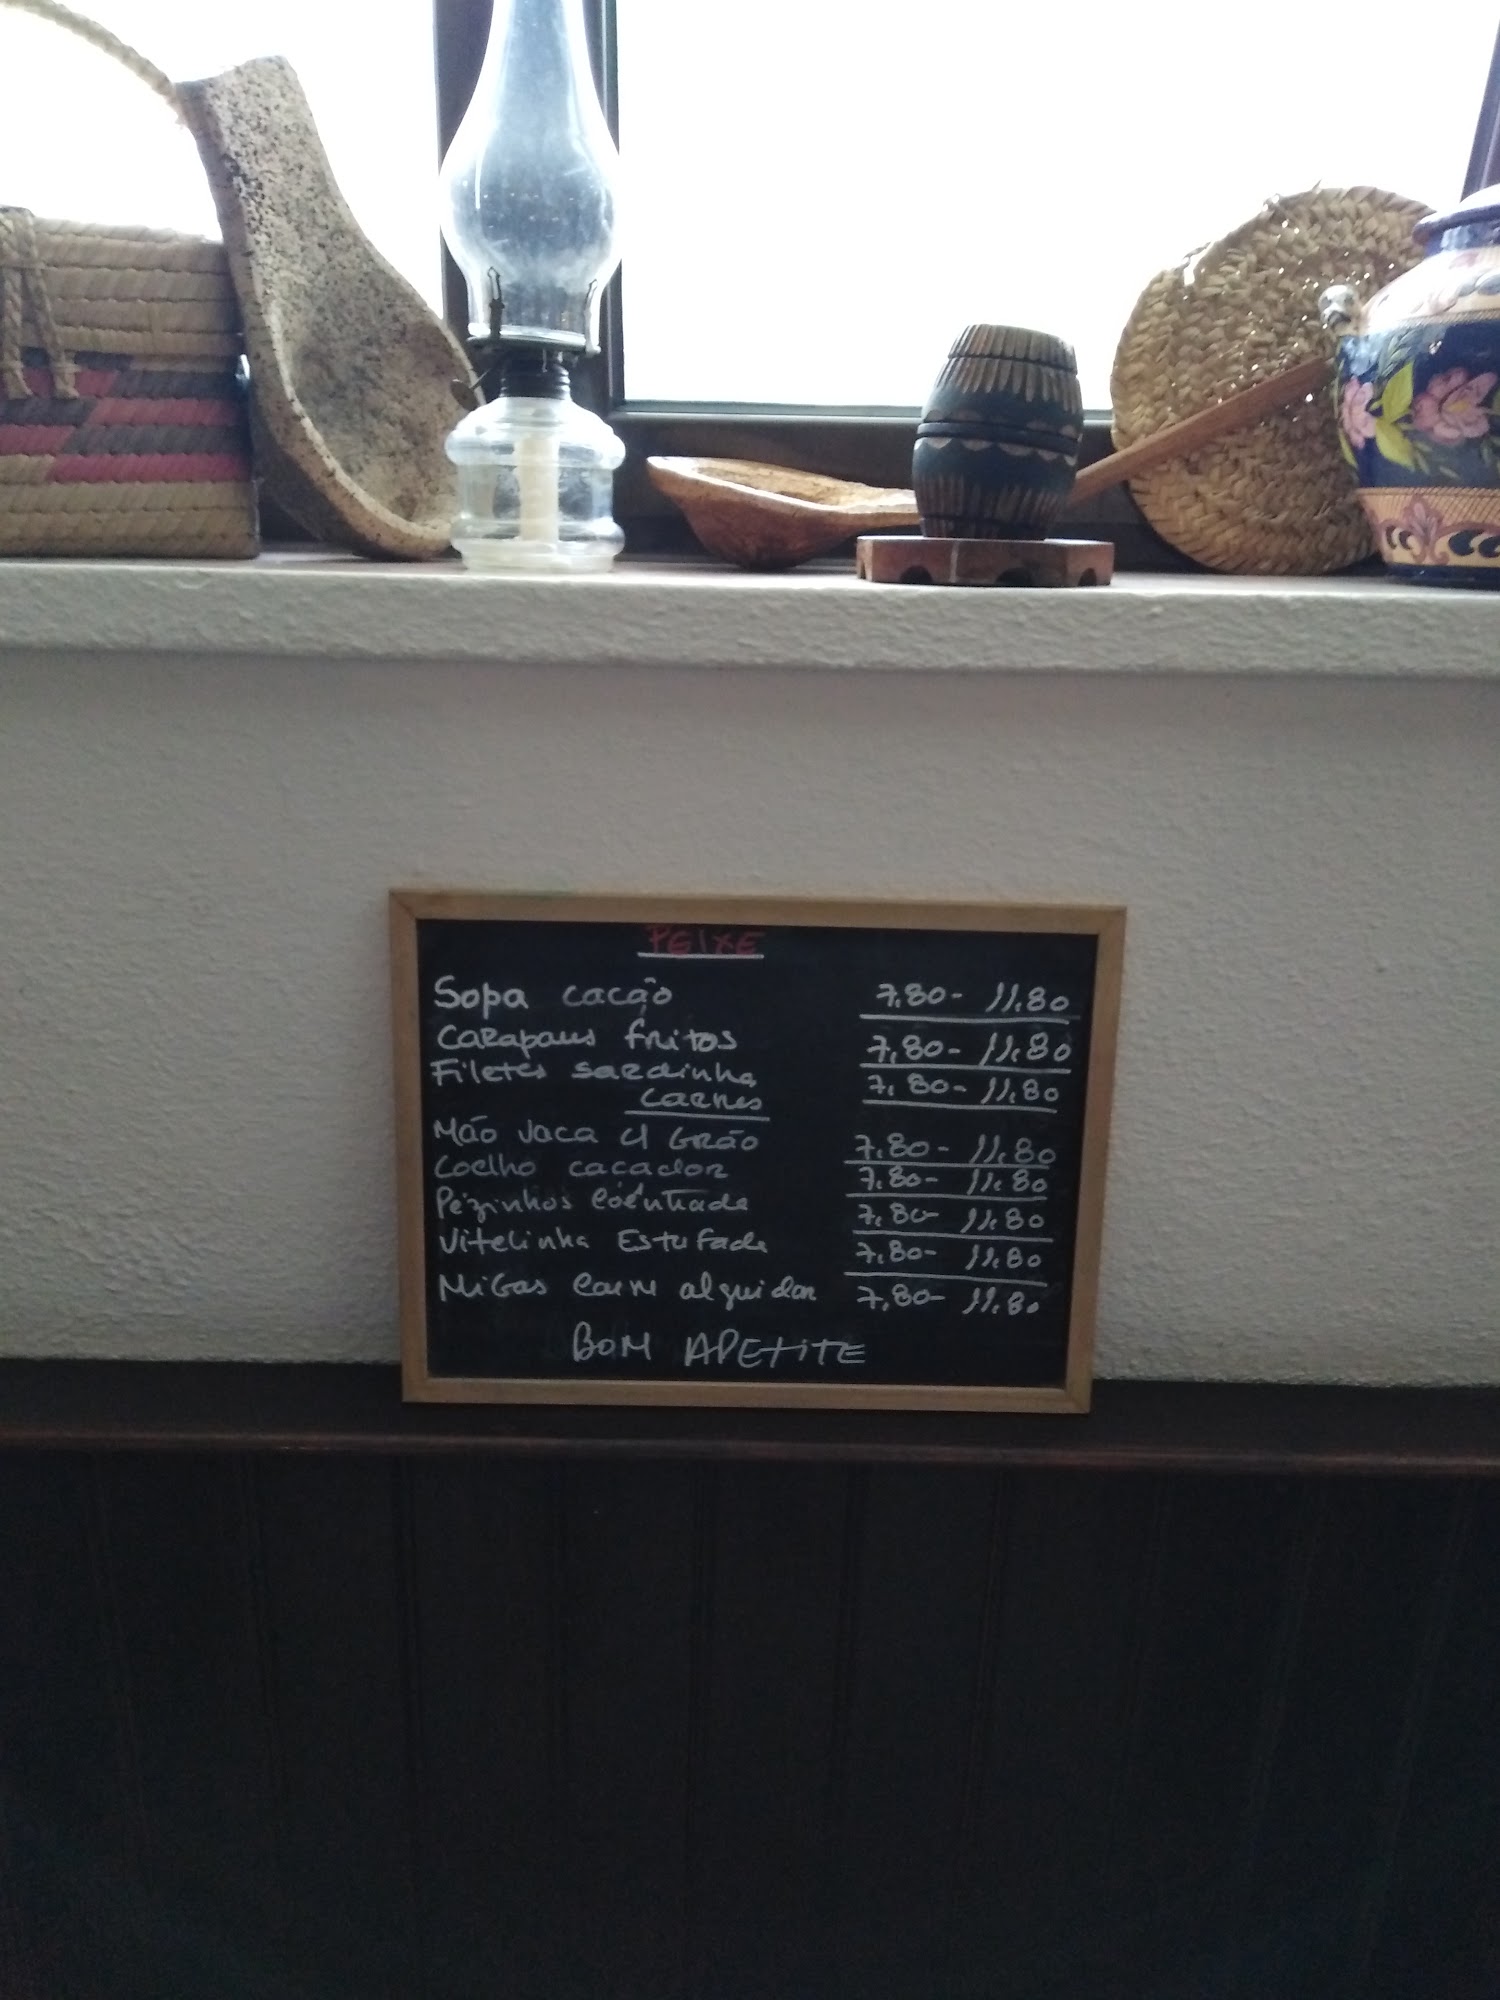 PEIXE
Sopa cação 7.80- 11.80
Carapaus fritos 7.80- 11.80
Filetes sardinha 7.80- 11.80
Carnes
Mão vaca c/ Grão 7.80- 11.80
Coelho caçador 7.80- 11.80
Pézinhos Coentrada 7.80- 11.80
Vitelinha Estufada 7.80- 11.80
Migas Carne alguidar 7.80- 11.80
BOM APETITE